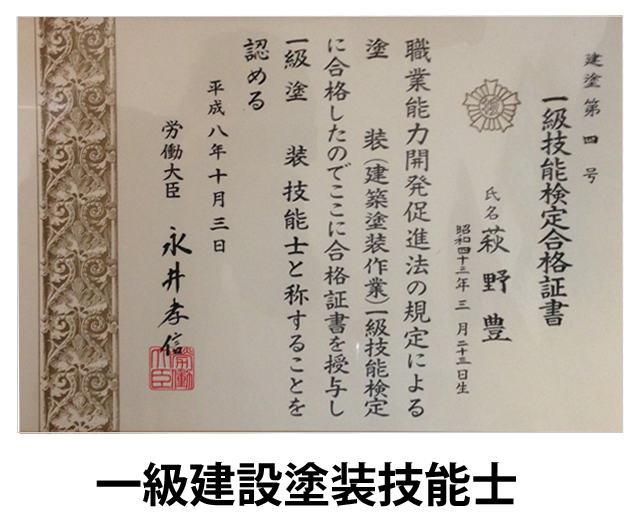 建塗第四号
一級技能検定合格証書
氏名 萩野豊
昭和四十三年三月二十三日生
職業能力開発促進法の規定による
塗装(建築塗装作業)一級技能検定
に合格したのでここに合格証書を授与し
一級塗装技能士と称することを
認める
平成八年十月三日
労働大臣 永井孝信
労働
大臣
一級建設塗装技能士